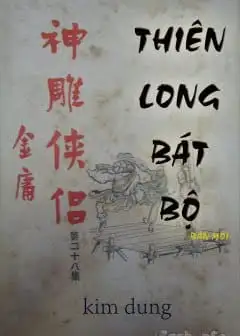 神雕俠侶
金庸
第二十八集
THIÊN
LONG
BÁT
BỘ
BẢN MỚI
kim dung